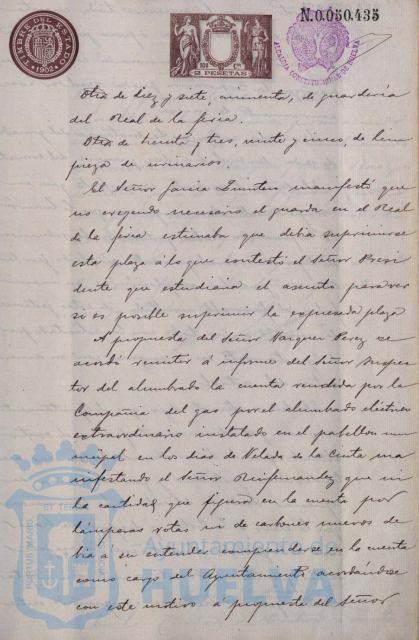 N.0.050.435
TIMBRE DEL ESTADO
1902
2 PESETAS
ALCALDIA CONSTITUCIONAL DE HUELVA
Otra de diez y siete, cincuenta, de guarderia
del Real de la feria.
Otra de treinta y tres, veinte y cinco, de lim
pieza de urinarios.
El Señor Garcia manifestó que
no creyendo necesario el guarda en el Real
de la feria estimaba que debia suprimirse
esta plaza á lo que contestó el Señor Presi
dente que estudiaria el asunto para ver
si es posible suprimir la expresada plaza
A propuesta del Señor Vazquez Perez se
acordó remitir á informe del Señor Inspec
tor del alumbrado la cuenta rendida por la
Compañia del gas por el alumbrado eléctrico
extraordinario instalado en el pabellon mu
nicipal en los dias de Velada de la Cinta ma
nifestando el Señor que ni
la cantidad que figura en la cuenta por
lámparas rotas ni de carbones nuevos de
bia á su entender comprenderse en la cuenta
como cargo del Ayuntamiento acordándose
con este motivo á propuesta del Señor
Ayuntamiento de
HUELVA